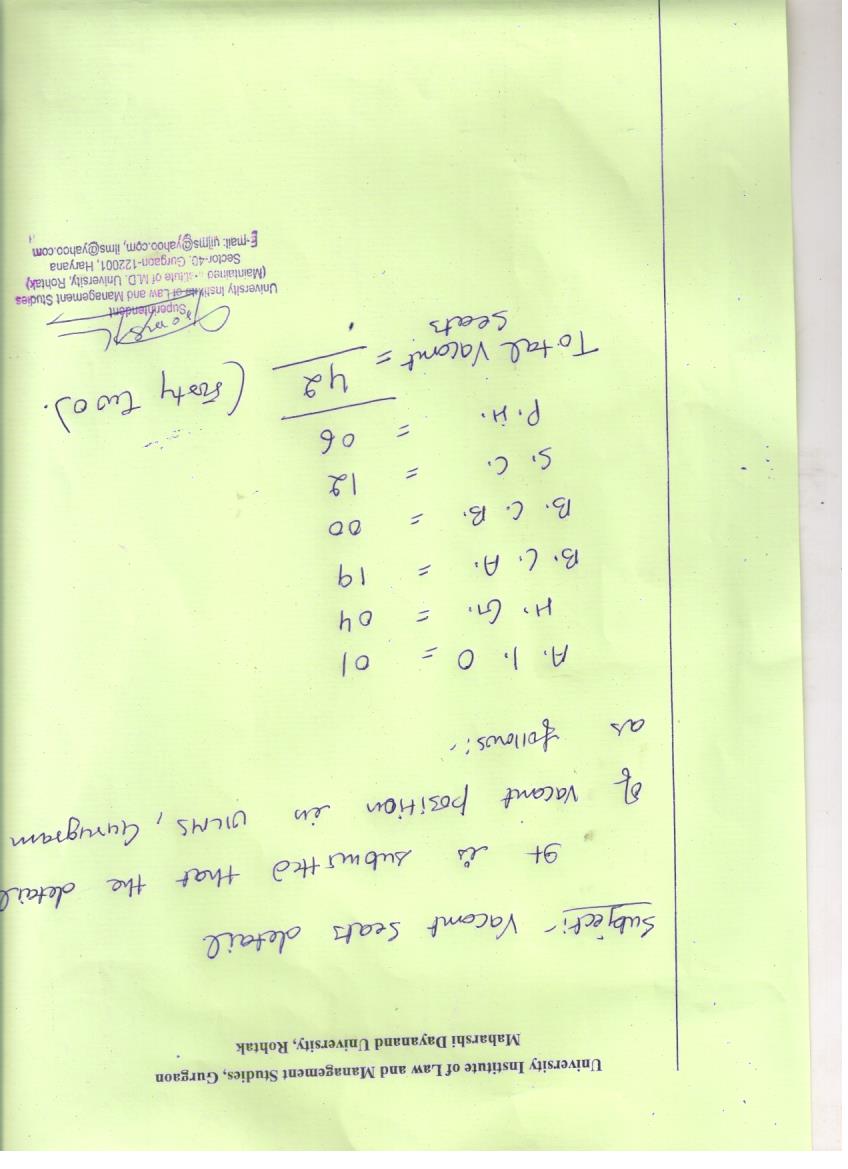 University Institute of Law and Management Studies, Gurgaon
Maharshi Dayanand University, Rohtak
Subject:- Vacant Seats detail
It is submitted that the detail
of vacant position in UILMS, Gurugram
as follows:-
A. I. O = 01
H. G. = 04
B. C. A. = 19
B. C. B. = 00
S. C. = 12
P. H. = 06
Total Vacant Seats = 42 (Forty two).
Superintendent
University Institute of Law and Management Studies
(Maintained Institute of M.D. University, Rohtak)
Sector-40, Gurgaon-122001, Haryana
E-mail: uilms@yahoo.com, ilms@yahoo.com